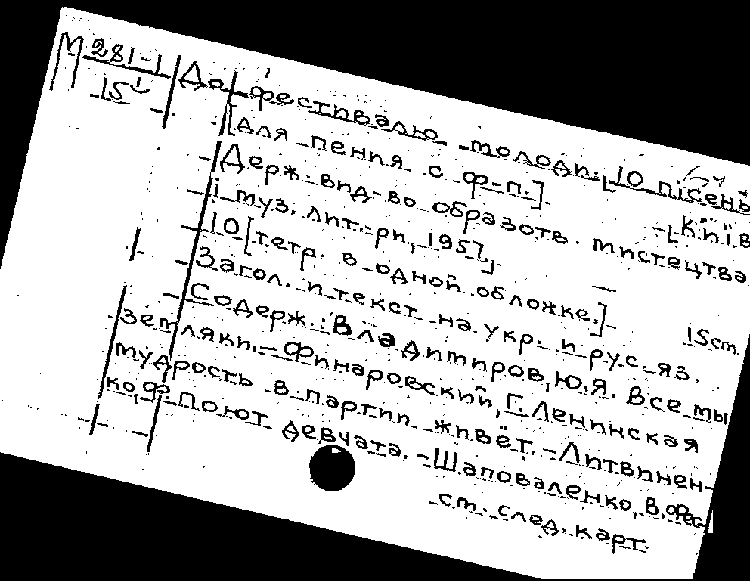 М 281-1
15
До фестивалю молоди: 10 пісень
[для пения с ф-п.] - Київ
Держ. вид-во образотв. мистецтва
і муз. лит-ри, 1957.
10 [тетр. в одной обложке.] 15cm.
Загол. и текст на укр. и рус. яз.
Содерж.: Владимиров, Ю.Я. Все мы
земляки. - Финаровский, Г. Ленинская
мудрость в партии живёт. - Литвинен-
ко, Ф. Поют девчата. - Шаповаленко, В. Фес
см. след. карт.